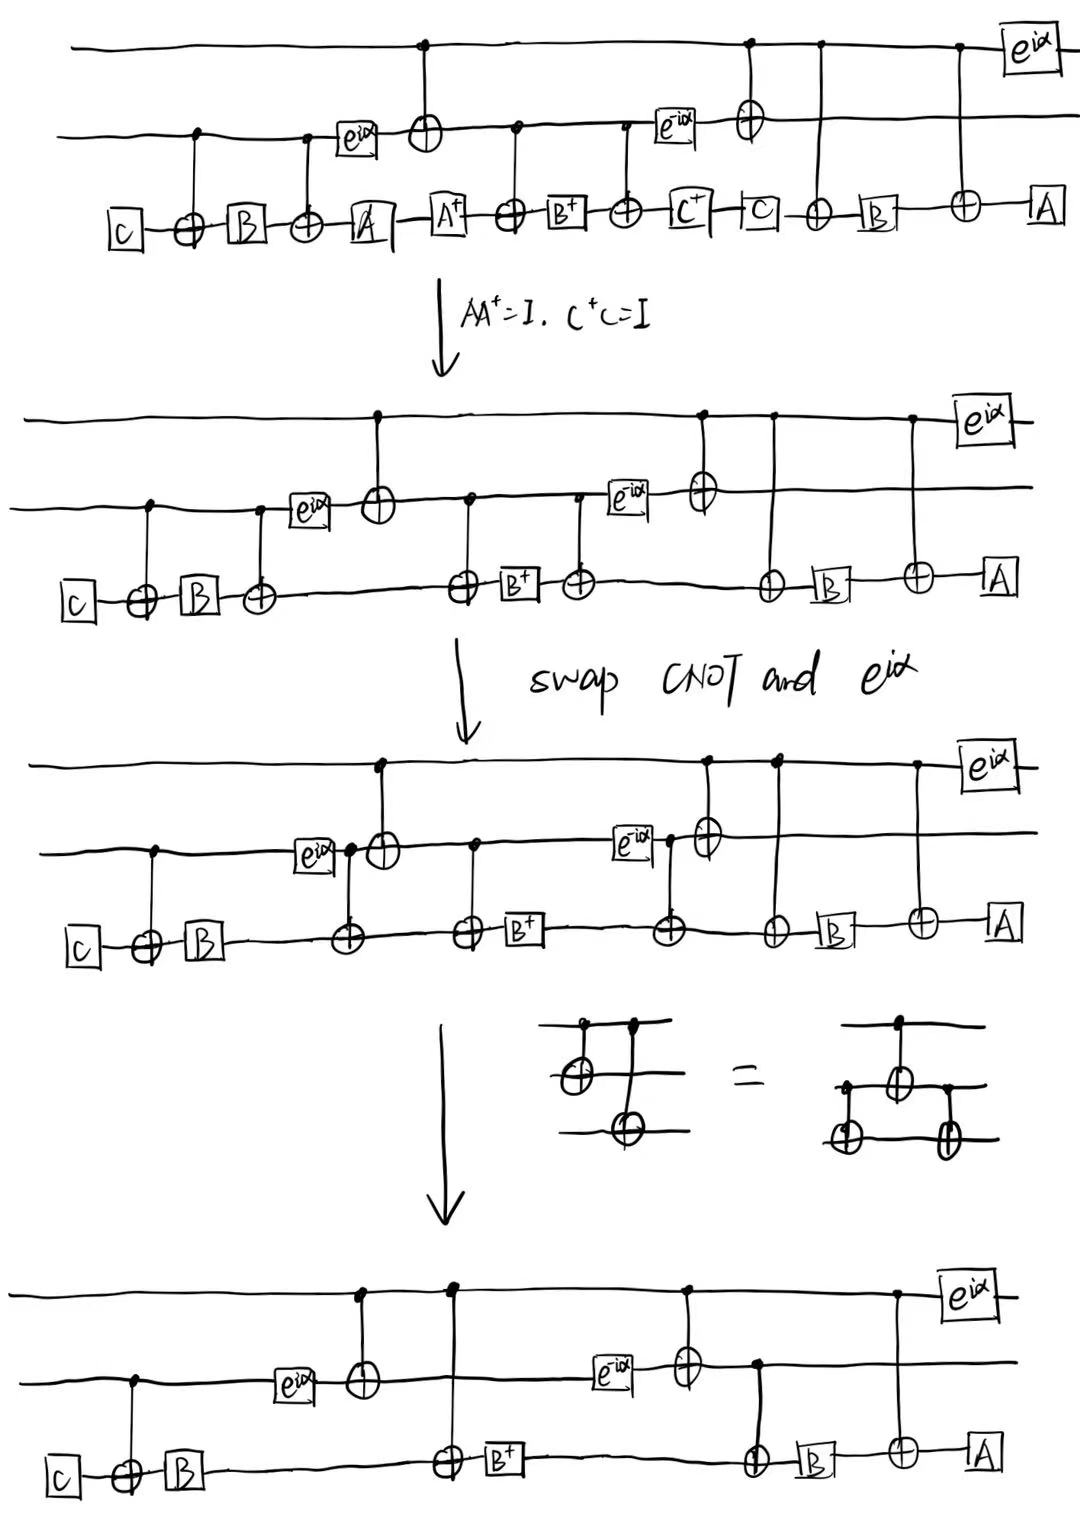 e^{iα}
e^{iα} e^{-iα}
C B A A⁺ B⁺ C⁺ C B A
AA⁺=I. C⁺C=I
e^{iα}
e^{iα} e^{-iα}
C B B⁺ B A
swap CNOT and e^{iα}
e^{iα}
e^{iα} e^{-iα}
C B B⁺ B A
=
e^{iα}
e^{iα} e^{-iα}
C B B⁺ B A